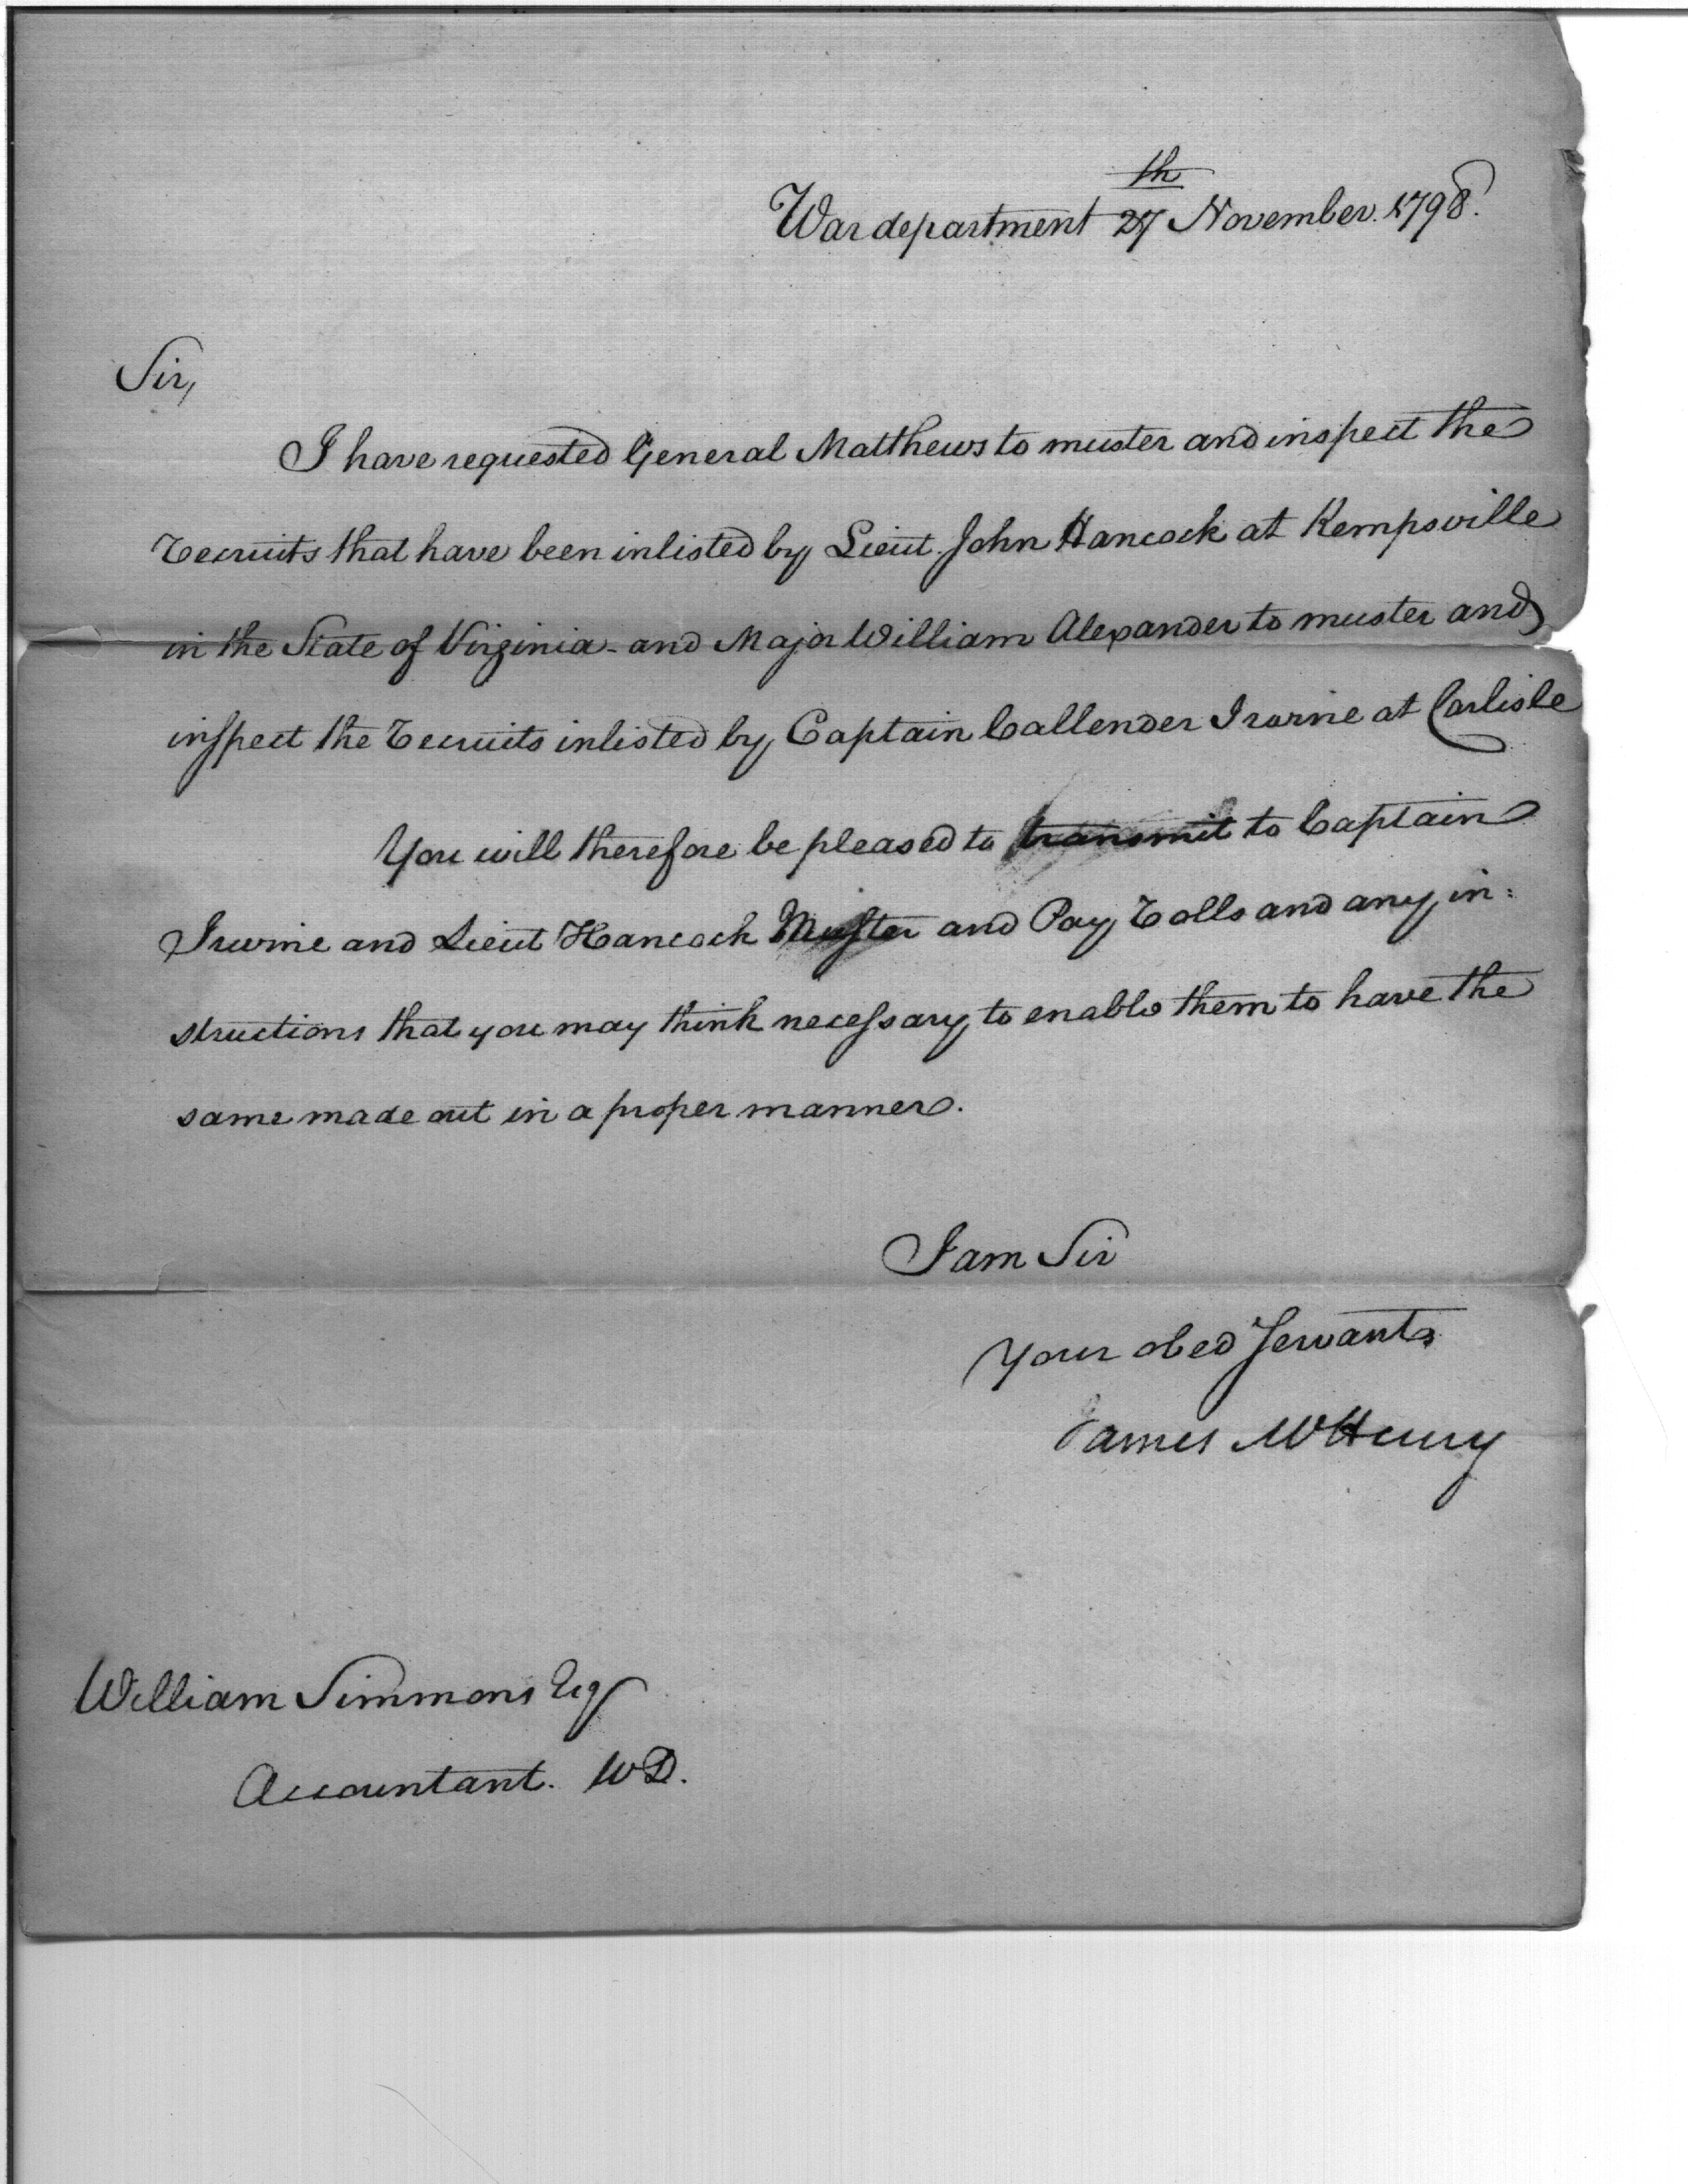 War department 27th November. 1798.
Sir,
I have requested General Matthews to muster and inspect the
Recruits that have been inlisted by Lieut. John Hancock at Kempsville
in the State of Virginia - and Major William Alexander to muster and
inspect the Recruits inlisted by Captain Callender Irvine at Carlisle
You will therefore be pleased to transmit to Captain
Irvine and Lieut Hancock Muster and Pay Rolls and any in:
structions that you may think necessary to enable them to have the
same made out in a proper manner.
I am Sir
Your obed Servant
James McHenry
William Simmons Esq
Accountant. W D.